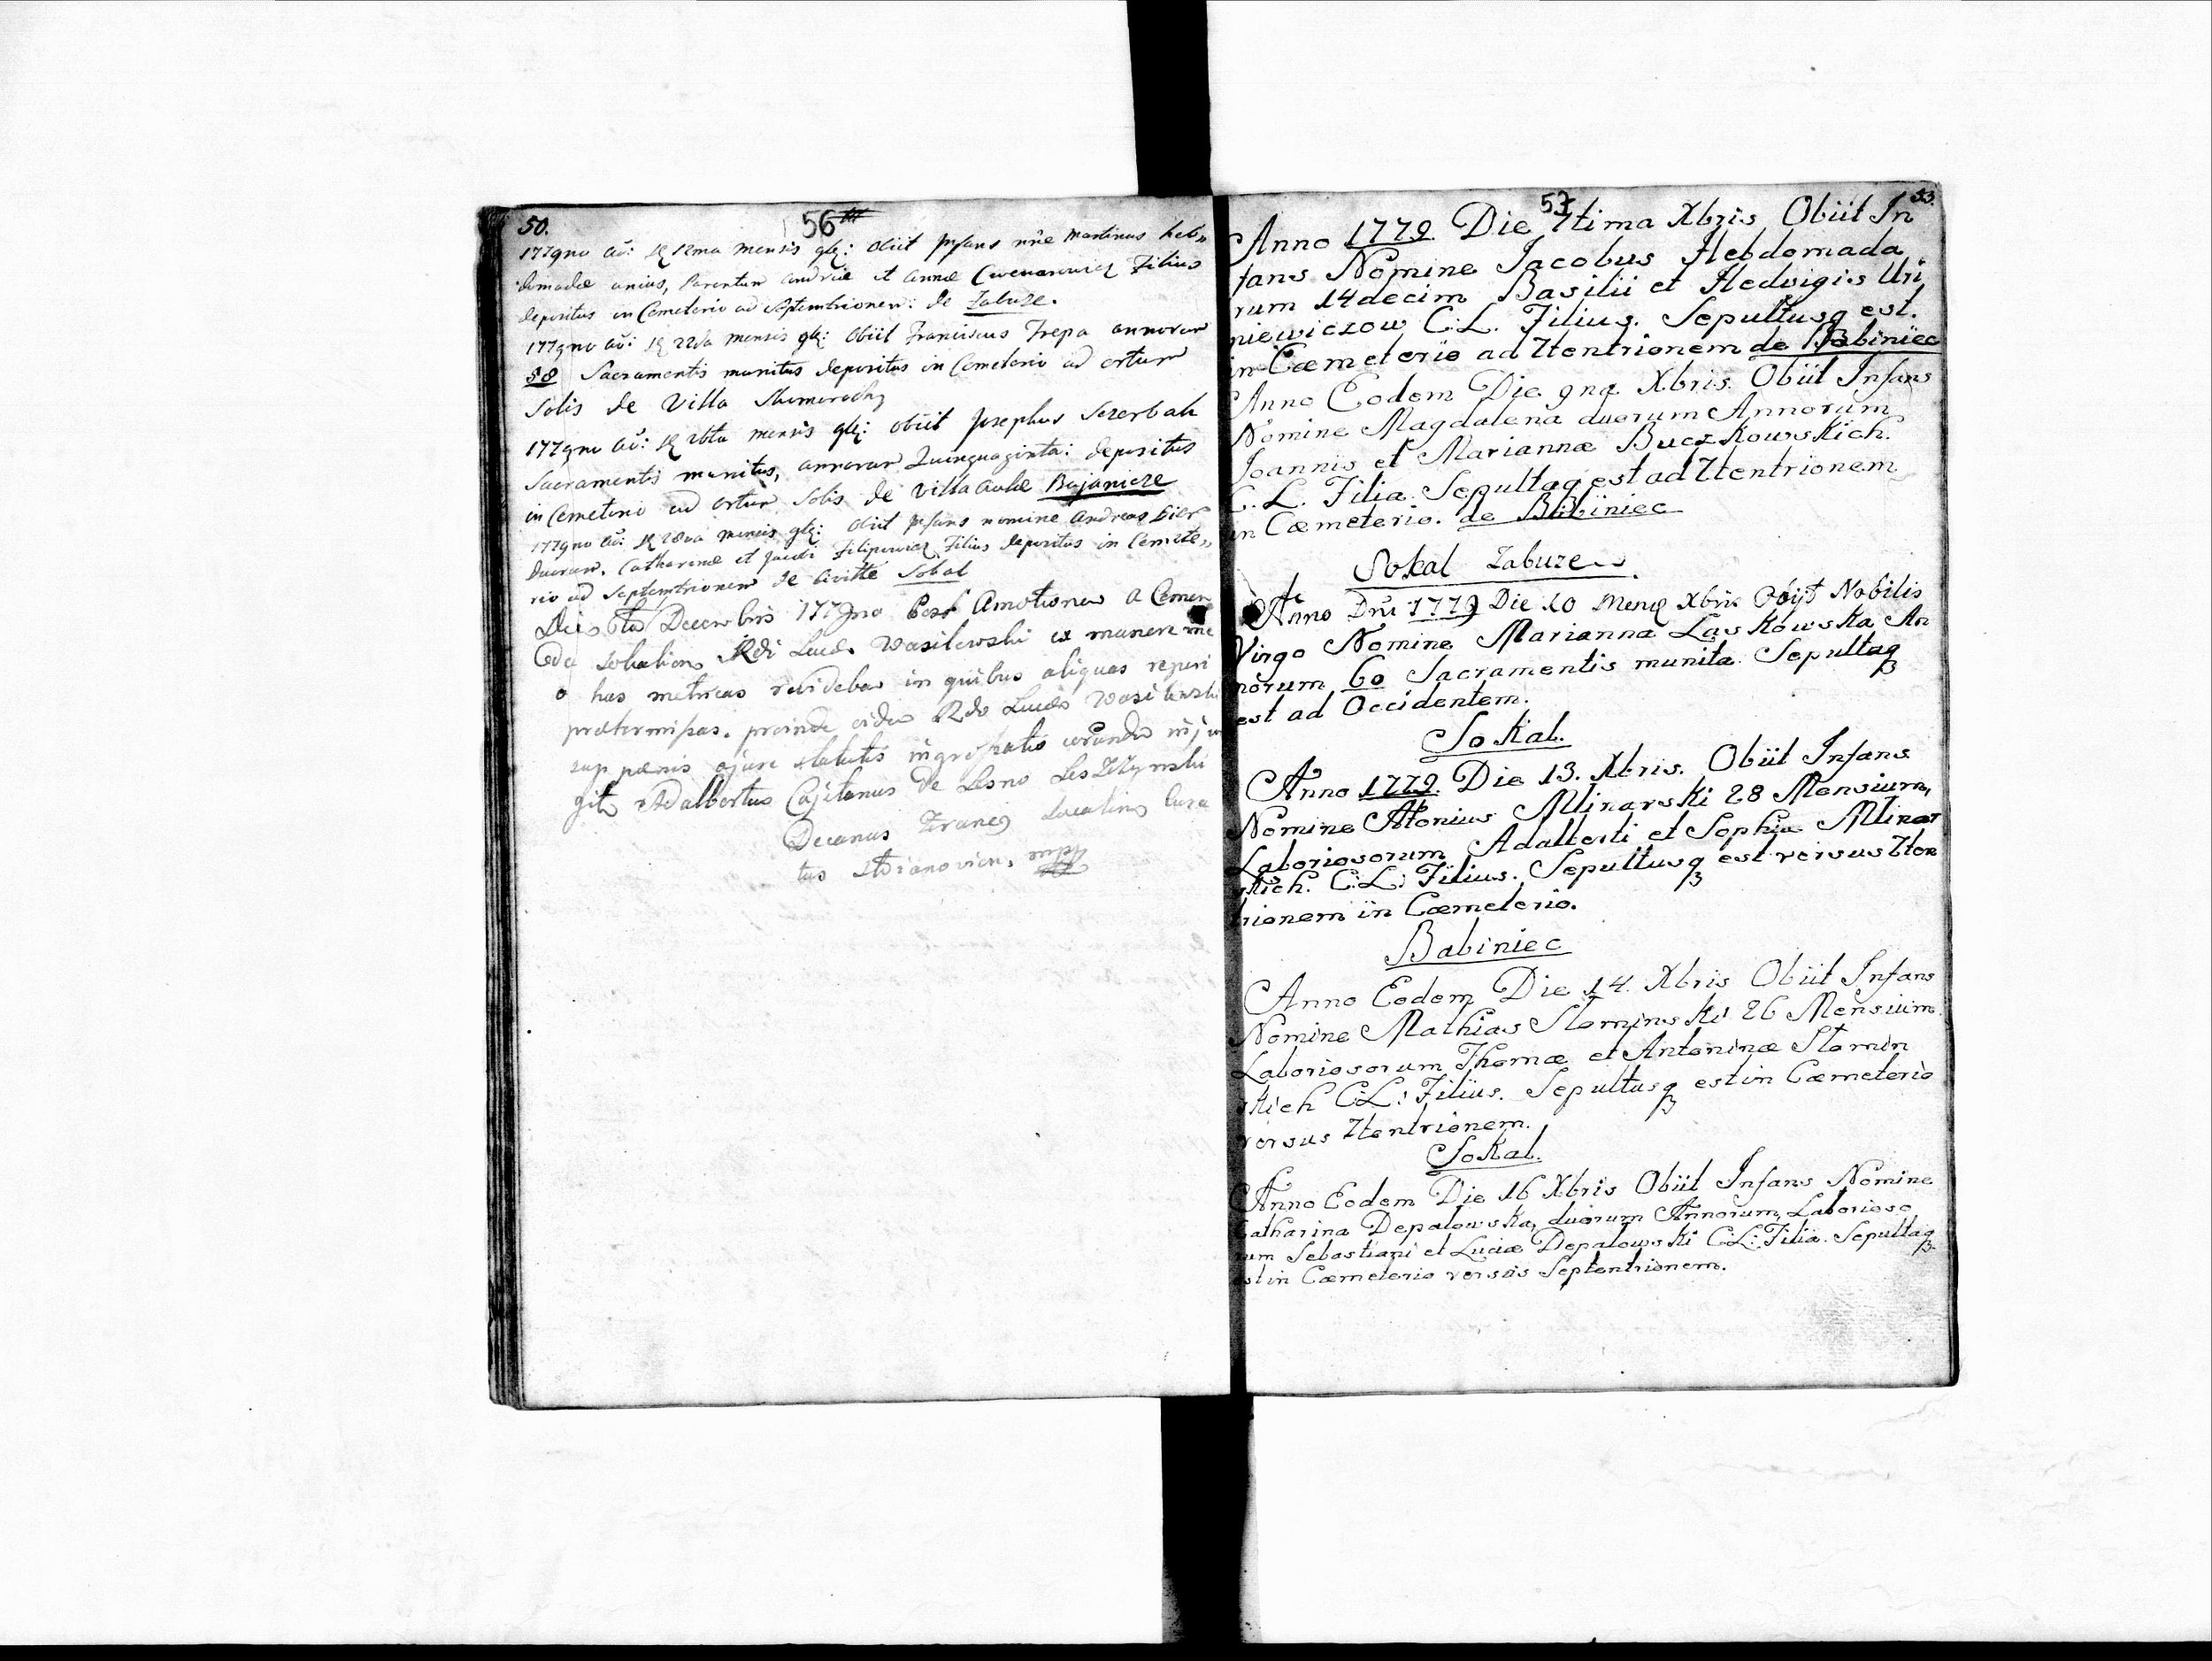 50.
56
1779no an: d 12ma mensis gbr: obiit Infans nne Martinus heb„
domadae unius, Parentum Andreae et Annae Filius
depositus in Cemeterio ad Septemtrionem: de Zabuze.
1779no an: d 22da mensis gbr: Obiit Franciscus Trepa annorum
58 Sacramentis munitus depositus in Cemeterio ad ortum
Solis de Villa
1779no an: d 26ta mensis gbr: obiit Josephus Szczerbak
Sacramentis munitus, annorum Quinquaginta: depositus
in Cemeterio ad ortum Solis de Villa Bujanicze
1779no an: d 28va mensis gbr: obiit Infans nomine Andreas Dier
Duorum. Catharinae et Filipowicz Filius depositus in Cemete„
rio ad Septemtrionem de Sokal
Die 6ta Decembris 1779no Post Amotionem a Comen
da Sokalien Rdi Lucae Wasilewski ex munere me
o has metricas revidebam in quibus aliquas reperi
praetermissas. proinde eidem Rdo Lucae Wasilewski
sup paenis a jure statutis inju
git Adalbertus Cajetanus de Lesno Leszczynski
Decanus Cura
tus mpp
53.
57
Anno 1779. Die 7tima Xbris Obiit In
fans Nomine Jacobus Hebdomada
rum 14decim Basilii et Hedvigis Uri
niewiczow C.L. Filius. Sepultusq est.
in Cæmeterio ad 7tentrionem de Babiniec
Anno Eodem Die 9na Xbris. Obiit Infans
Nomine Magdalena duorum Annorum
Joannis et Mariannæ Buczkowskich.
C. L. Filia. Sepultaq est ad 7tentrionem
in Cæmeterio. de Babiniec
Sokal Zabuze
Anno Dni 1779 Die 10 Mens Xbris Obijt Nobilis
Virgo Nomine Marianna Laskowska An
norum 60 Sacramentis munita. Sepultaq
est ad Occidentem.
Sokal.
Anno 1779. Die 13. Xbris. Obiit Infans
Nomine Atonius Mlinarski 28 Mensium,
Laboriosorum Adalberti et Sophiæ Mlinar
skich. C:L: Filius. Sepultusq est versus 7ten
trionem in Cæmeterio.
Babiniec
Anno Eodem Die 14. Xbris Obiit Infans
Nomine Mathias Slominski 26 Mensium
Laboriosorum Thomæ et Antoninæ Slomin
skich C:L: Filius. Sepultusq est in Cæmeterio
versus 7tentrionem.
Sokal.
Anno Eodem Die 16 Xbris Obiit Infans Nomine
Catharina Depalowska, duorum Annorum, Laborioso
rum Sebastiani et Luciæ Depalowski C:L: Filia. Sepultaq
est in Cæmeterio versus Septentrionem.